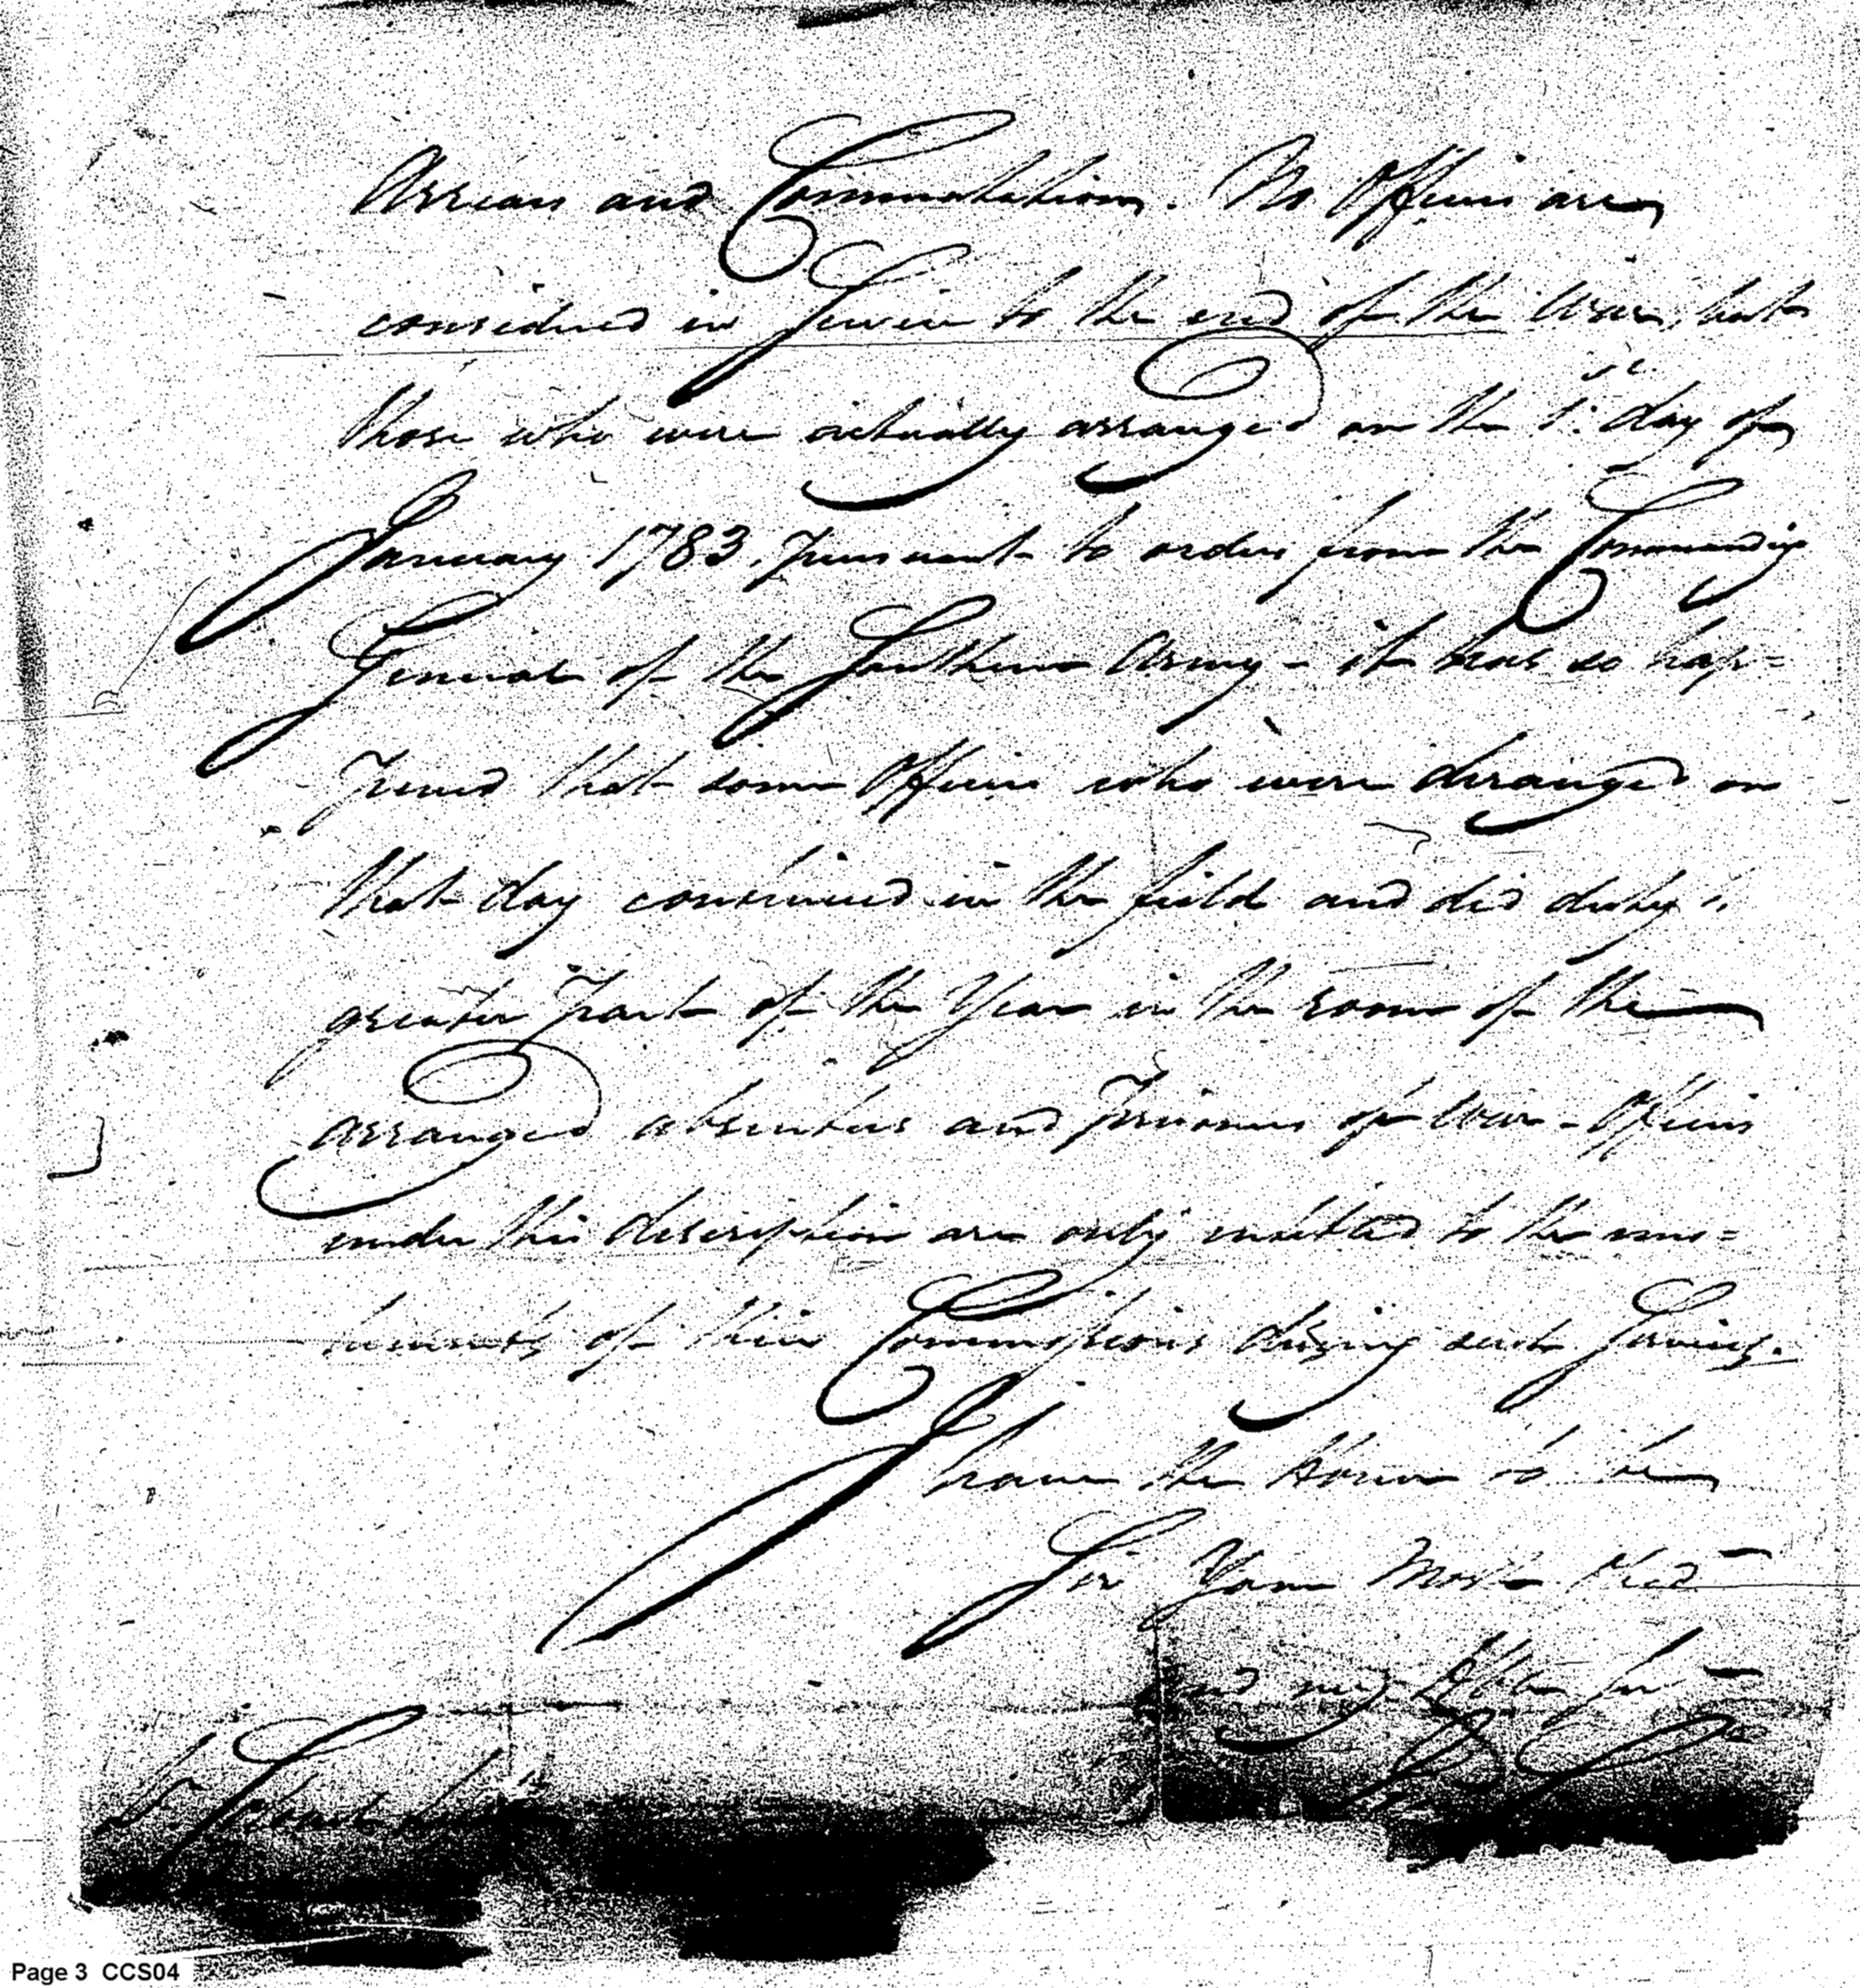 Arrears and Commutation. No Officers are
considered in Service to the end of the War, but
those who were actually arranged on the 1st day of
January 1783. pursuant to orders from the Commanding
General of the Southern Army - it has so hap=
pened that some Officers who were deranged on
that day continued in the field and did duty
greater part of the Year in the room of the
arranged absentees and Prisoners of War - Officers
under this description are only entitled to the emo=
luments of their Commissions during such Service.
I have the Honor to be
Sir Your Most Obed
and
Page 3 CCS04